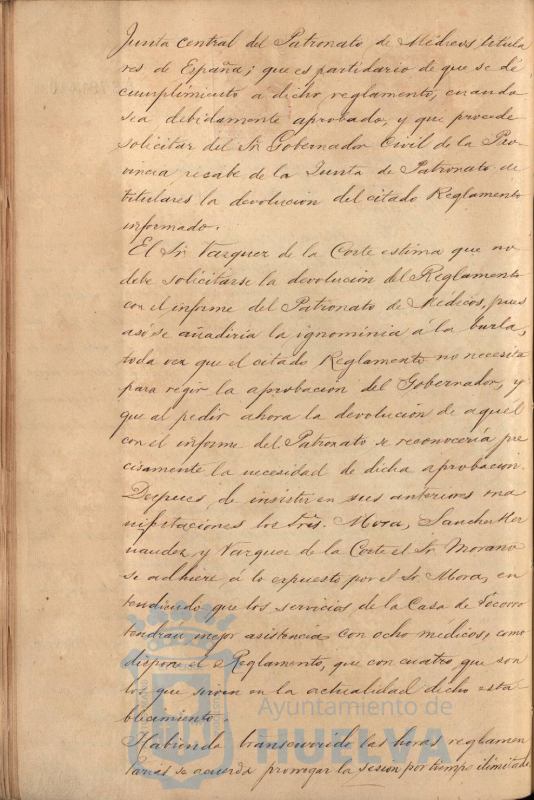 Junta central del Patronato de Médicos titula
res de España; que es partidario de que se dé
cumplimiento a dicho reglamento, cuando
sea debidamente aprobado, y que procede
solicitar del Sr. Gobernador Civil de la Pro-
vincia recabe de la Junta de Patronato de
titulares la devolucion del citado Reglamento
informado.
El Sr. Vazquez de la Corte estima que no
debe solicitarse la devolución del Reglamento
con el informe del Patronato de Médicos, pues
asi se añadiría la ignominia á la burla,
toda vez que el citado Reglamento no necesita
para regir la aprobación del Gobernador, y
que al pedir ahora la devolución de aquel
con el informe del Patronato se reconocería pre
cisamente la necesidad de dicha aprobacion.
Despues de insistir en sus anteriores ma
nifestaciones los Sres. Mora, Sanchez Her
nandez y Vazquez de la Corte el Sr. Morano
se adhiere á lo expuesto por el Sr. Mora, en
tendiendo que los servicios de la Casa de Socorro
tendran mejor asistencia con ocho medicos, como
dispone el Reglamento, que con cuatro, que son
los que sirven en la actualidad dicho esta
blecimiento.
Habiendo transcurrido las horas reglamen
tarias se acuerda prorrogar la sesion por tiempo ilimitado
Ayuntamiento de
HUELVA